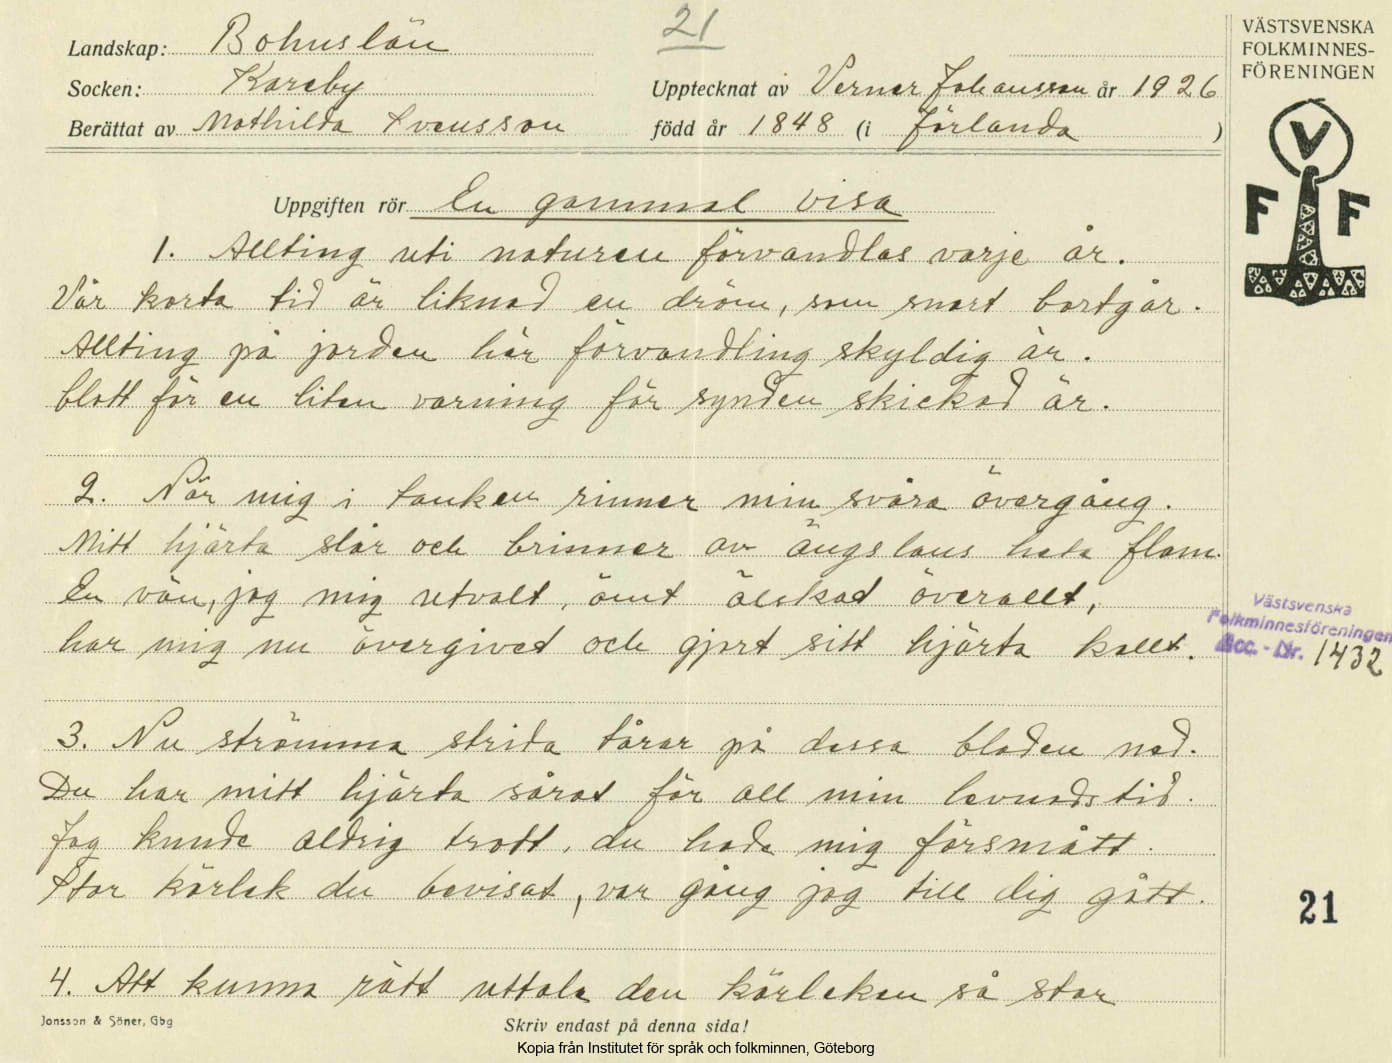 Landskap: Bohuslän
21
Socken: Kareby
Upptecknat av Verner Johansson år 1926
Berättat av Mathilda Svensson
född år 1848 (i Förlanda )
Uppgiften rör En gammal visa
1. Allting uti naturen förvandlas varje år.
Vår korta tid är liknad en dröm, som snart bortgår.
Allting på jorden här förvandling skyldig är.
blott för en liten varning för synden skickad är.
2. När mig i tanken rinner min svåra övergång.
Mitt hjärta slår och brinner av ängslans heta flam.
En vän, jag mig utvalt, ömt älskat överallt,
har mig nu övergivet och gjort sitt hjärta kallt.
3. Nu strömma strida tårar på dessa bladen ned.
Du har mitt hjärta sårat för all min levnadstid.
Jag kunde aldrig trott, du hade mig försmått.
Stor kärlek du bevisat, var gång jag till dig gått.
4. Att kunna rätt uttala den kärleken så stor
Jonsson & Söner, Gbg
Skriv endast på denna sida!
Kopia från Institutet för språk och folkminnen, Göteborg
VÄSTSVENSKA
FOLKMINNES-
FÖRENINGEN
V
F F
Västsvenska
Folkminnesföreningen
Acc. - Nr. 1432
21